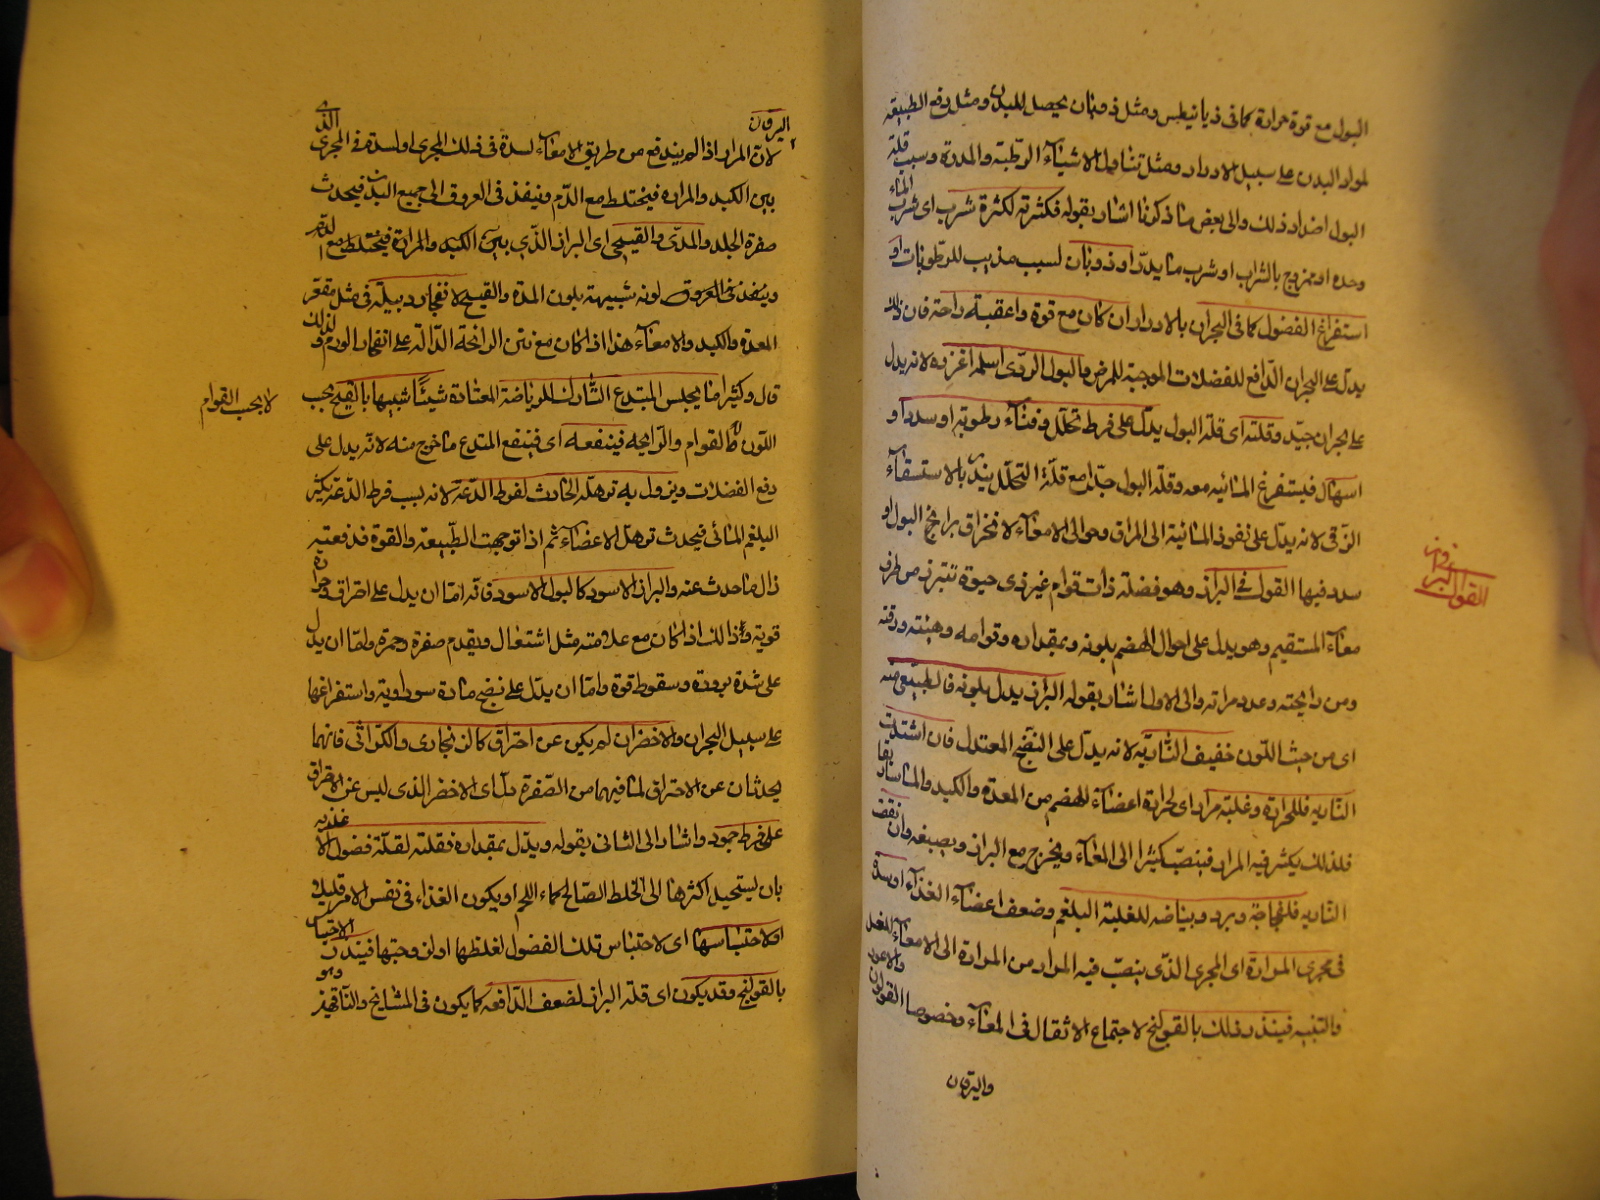 البول مع قوة حرارة كما فى ذيانيطيس ومثل ذوبان يحصل للبدن ومثل دفع الطبيعة
لمواد البدن على سبيل الادرار ومثل تناول الاشيآء الرطبة والمدرة وسبب قلة
البول اضداد ذلك والى بعض ما ذكرنا اشار بقوله فكثرته لكثرة شرب اى شرب المآء
وحده او ممزوج بالشراب او شرب ما يدرّ او ذوبان لسبب مذيب للرطوبات او
استفراغ الفضول كما فى البحران بالادرار ان كان مع قوة واعقبه راحة فان ذلك
يدل على البحران الدافع للفضلات الموجبة للمرض فالبول الردى اسلمه اغزره لانه يدل
على بحران جيّد وقلته اى قلة البول يدلّ على فرط تحلّل وفنآء رطوبة او سدد او
اسهال فيستفرغ المائيه معه وقلة البول جدّا مع قلة التحلّل ينذر بالاستسقآء
الزقى لانه يدلّ على نفوذ المائية الى المراق وحوالى الامعآء لانخراق برابخ البول او
سدد فيها القول فى البراز وهو فضلة ذات قوام غير ذى حيوة تتبرز من طرف
معآء المستقيم وهو يدل على احوال الهضم بلونه وبمقداره وقوامه وهيئته ووقته
ومن رايحته وعدد مراته والى الاول اشار بقوله البراز يدل بلونه فالطبيعى منه
اى من حيث اللون خفيف النّاريّه لانه يدلّ على النضج المعتدل فان اشتدت
الناريه فللحرارة وغلبة مرار اى لحرارة اعضآء الهضم من المعدة والكبد والماساريقا
فلذلك يكثر فيه المرار فينصبّ كثيرا الى المعآء ويخرج مع البراز ويصبغه وان نقصت
الناريه فلفجاجة وبرد وبياضه للغلبة البلغم وضعف اعضآء الغذآء او سدة
فى مجرى المرارة اى المجرى الذى ينصبّ فيه المرار من المرارة الى الامعآء
فينذر ذلك بالقولنج لاجتماع الاثقال فى المعآء وخصوصا القولون
واليرقان
القول فى البراز
اليرقان
لان المرار اذا لم يندفع من طريق الامعآء لسدة فى ذلك المجرى او لسدة فى المجرى الذى
بين الكبد والمراره فيختلط مع الدّم وينفذ فى العروق الى جميع البدن فيحدث
صفرة الجلد والمدّى والقيحى اى البراز الذى بين الكبد والمرارة فيختلط مع الدم
وينفذ فى العروق لونه شبيهة بلون المدة والقيح لانفجار دبيلة فى مثل مقعّر
المعدة والكبد والامعآء هذا اذا كان مع نتن الرائحة الدّالة على انفجار الورم ولذلك
قال وكثيرا ما يجلس المبتدع التّارك للرياضة المعتادة شيئًا شبيها بالقيح بحسب
لا بحسب القوام
اللون لا القوام والرّايحه فينفعه اى فينتفع المتدع ما خرج منه لانّه يدل على
دفع الفضلات ويزول به ترهّله الحادث لفرط الدّعة لانه بسبب فرط الدّعة يكثر
البلغم المائى فيحدث ترهل الاعضآء ثم اذا توجهت الطّبيعة والقوة فدفعته
زال ما حدث عنه والبراز الاسود كالبول الاسود فانّه امّا ان يدل على احتراق وحرارة
قوية وذلك اذا كان مع علامته مثل اشتعال ويقدم صفرة وحمرة وامّا ان يدل
على شدة برودة وسقوط قوة وامّا ان يدلّ على نضج مادة سوداوية واستفراغها
على سبيل البحران والاخضر ان لم يكن عن احتراق كالزنجارى والكرّاثى فانهما
يحدثان عن الاحتراق لما فيهما من الصّفرة دل اى الاخضر الذى ليس عن الاحتراق
على فرط جمود واشار الى الثانى بقوله ويدّل بمقداره فقلته لقلّة فضول الاغذيه
بان يستحيل اكثرها الى الخلط الصّالح كماء اللحم او يكون الغذاء فى نفس الامر قليلا
اولاحتباسها اى لاحتباس تلك الفضول لغلظها او لزوجتها فينذر الاحتباس
بالقولنج وقد يكون اى قلة البراز لضعف الدّافعه كما يكون فى المشايخ والناقهين وهو